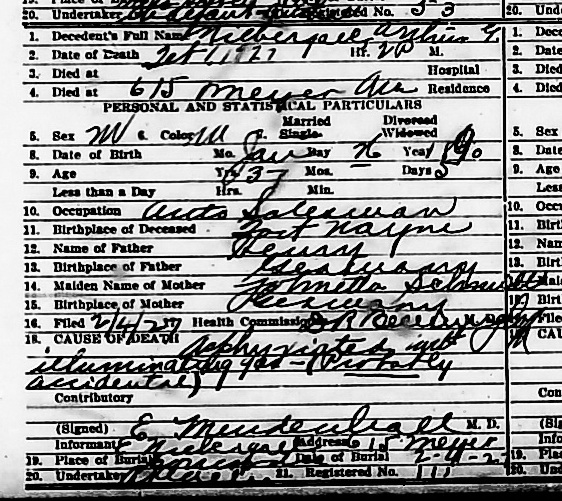 20. Undertaker Registered No. 53
1. Decedent's Full Name Niebergall, Arthur G.
2. Date of Death Feb 1, 27 Hr. P M.
3. Died at Hospital
4. Died at 615 Meyer Ave Residence
PERSONAL AND STATISTICAL PARTICULARS
5. Sex M 6. Color W 7. Married Single. Divorced Widowed
8. Date of Birth Mo. Jan Day 26 Year 1890
9. Age Yrs. 37 Mos. Days 5
Less than a Day Hrs. Min.
10. Occupation Auto Salesman
11. Birthplace of Deceased Fort Wayne
12. Name of Father Henry
13. Birthplace of Father Germany
14. Maiden Name of Mother
15. Birthplace of Mother Germany
16. Filed 2/4/27 Health Commissioner M. D.
18. CAUSE OF DEATH Asphyxiated with
illuminating gas - (Probably
accidental)
Contributory
(Signed) E. Mendenhall M. D.
Informant E Niebergall Address 615 Meyer
19. Place of Burial Date of Burial 2-4-27
20. Undertaker 21. Registered No. 111